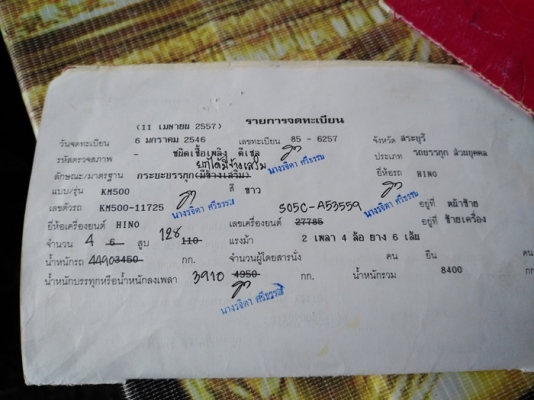 (11 เมษายน 2557) รายการจดทะเบียน
วันจดทะเบียน 6 มกราคม 2546 เลขทะเบียน 85 - 6257 จังหวัด สระบุรี
รหัสตรวจสภาพ - ชนิดเชื้อเพลิง ดีเซล ประเภท รถบรรทุก ส่วนบุคคล
ลักษณะ/มาตรฐาน กระบะบรรทุก(มีข้างเสริม) ยี่ห้อรถ HINO
แบบ/รุ่น KM500 สี ขาว
เลขตัวรถ KM500-11725 S05C-A53559 อยู่ที่ หน้าซ้าย
ยี่ห้อเครื่องยนต์ HINO เลขเครื่องยนต์ 27785 อยู่ที่ ซ้ายเครื่อง
จำนวน 4 6 สูบ 128 110 แรงม้า 2 เพลา 4 ล้อ ยาง 6 เส้น
น้ำหนักรถ 4490 3450 กก. จำนวนผู้โดยสารนั่ง คน ยืน คน
น้ำหนักบรรทุกหรือน้ำหนักลงเพลา 3910 4950 กก. น้ำหนักรวม 8400 กก.